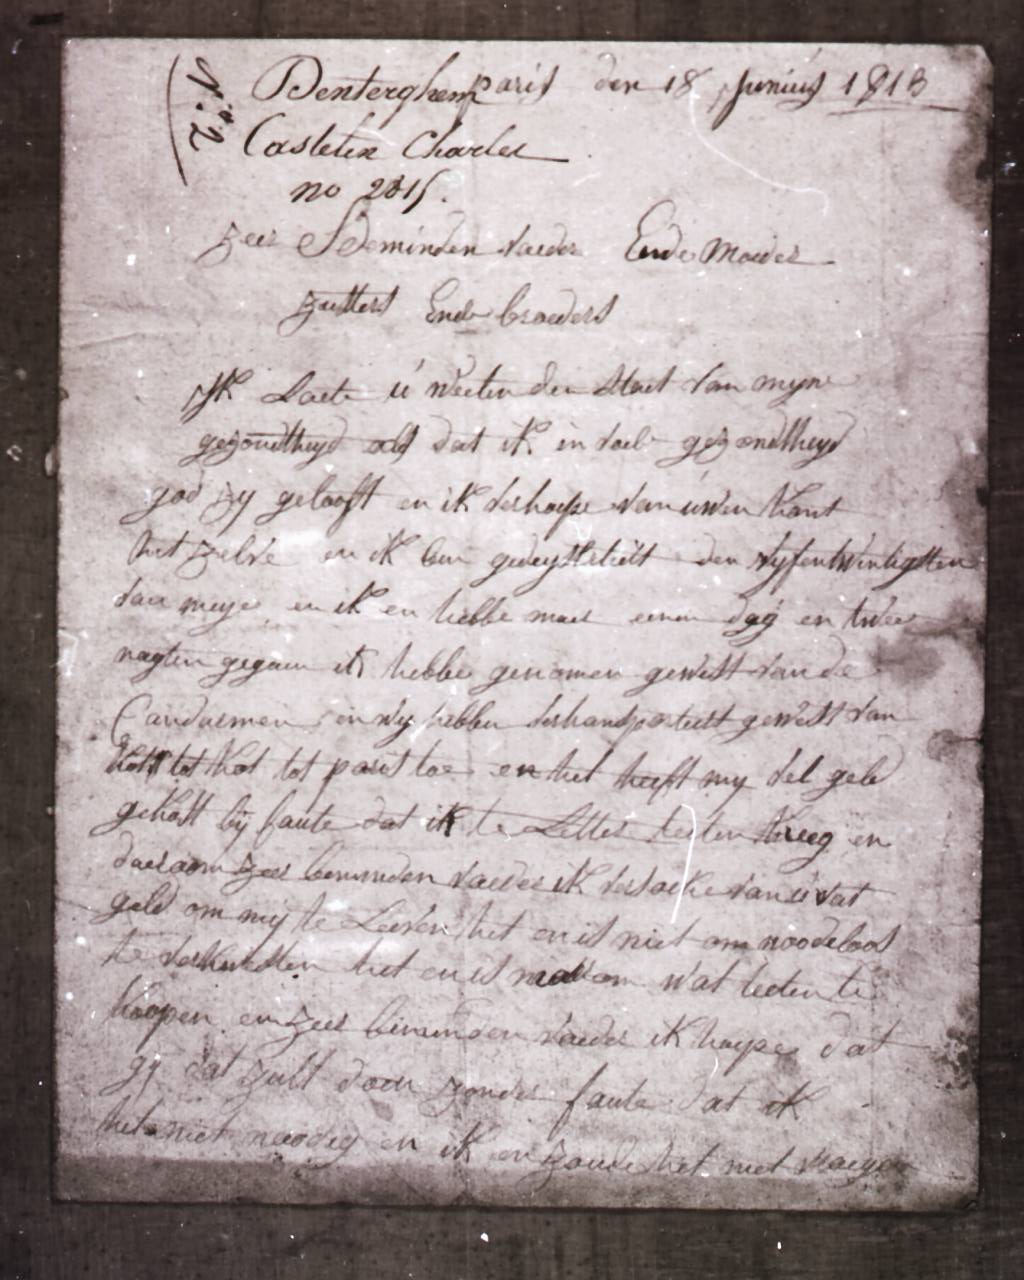 N.º 2
Denterghem paris den 18 Junius 1813
Castelin Charles
no 2815.
zeer Beminden vaeder Ende Moeder
zusters Ende broeders
Ik Laete u weeten den staet van myne
gezondtheyd als dat ik in goede gezondtheyd
god zy gelooft en ik verhoope van uwen kant
het zelve en ik ben gedeystsleert den vyfentwintigsten
van meye en ik en hebbe maer eenen dag en twee
nagten gegaen ik hebbe genomen geweest van de
Candarmen en wy hebben getransporteert geweest van
kot tot kot tot paris toe en het heeft my vel geld
gekost by faute dat ik te Letter eeten kreeg en
daerom zeer beminden vaeder ik versoeke van u wat
geld om my te Leeven het en is niet om noodeloos
te verkwisten het en is maer om wat eeten te
koopen en zeer beminden vaeder ik hoope dat
gy dat zult doen zonder faute dat ik
het niet noodig en ik en zoude het niet vraegen